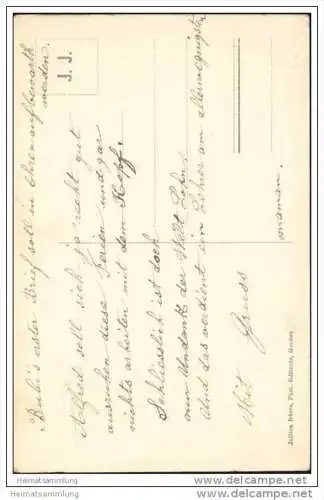 Bubi's erster Brief soll in Ehren aufbewahrt
werden.
Alfred soll sich ja recht gut
ausruhen diese Ferien und gar
nichts arbeiten mit dem Kopf.
Schliesslich ist doch
nur Undank der Welt Lohn
und das verdient ein Lehrer am allerwenigsten
Mit Gruss
J. J.
Jullien frères, Phot.-Editeurs, Genève
Heimatsammlung
Heimatsammlung
www.heimatsammlung.de